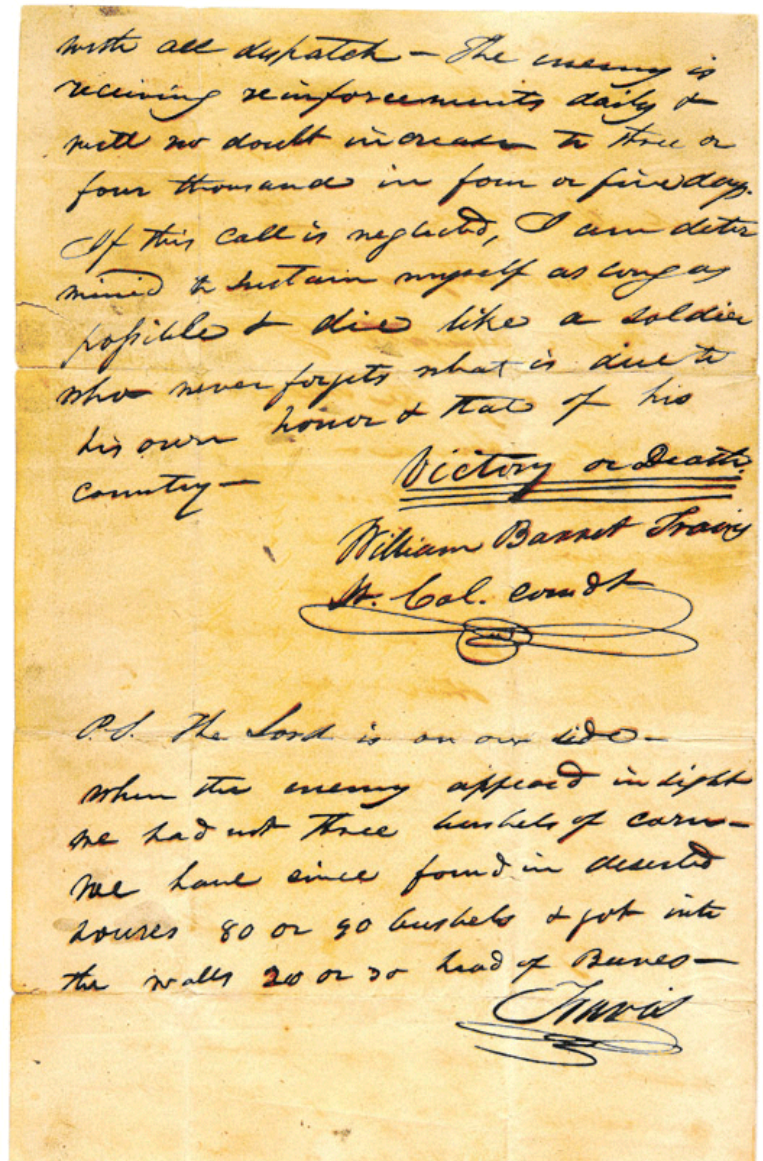 with all dispatch — The enemy is
receiving reinforcements daily &
will no doubt increase to three or
four thousand in four or five days.
If this call is neglected, I am deter
mined to sustain myself as long as
possible & die like a soldier
who never forgets what is due to
his own honor & that of his
country —
Victory or Death
William Barret Travis
Lt. Col. comdt
P.S. The Lord is on our side —
when the enemy appeard in sight
we had not three bushels of corn —
we have since found in deserted
houses 80 or 90 bushels & got into
the walls 20 or 30 head of Beeves —
Travis